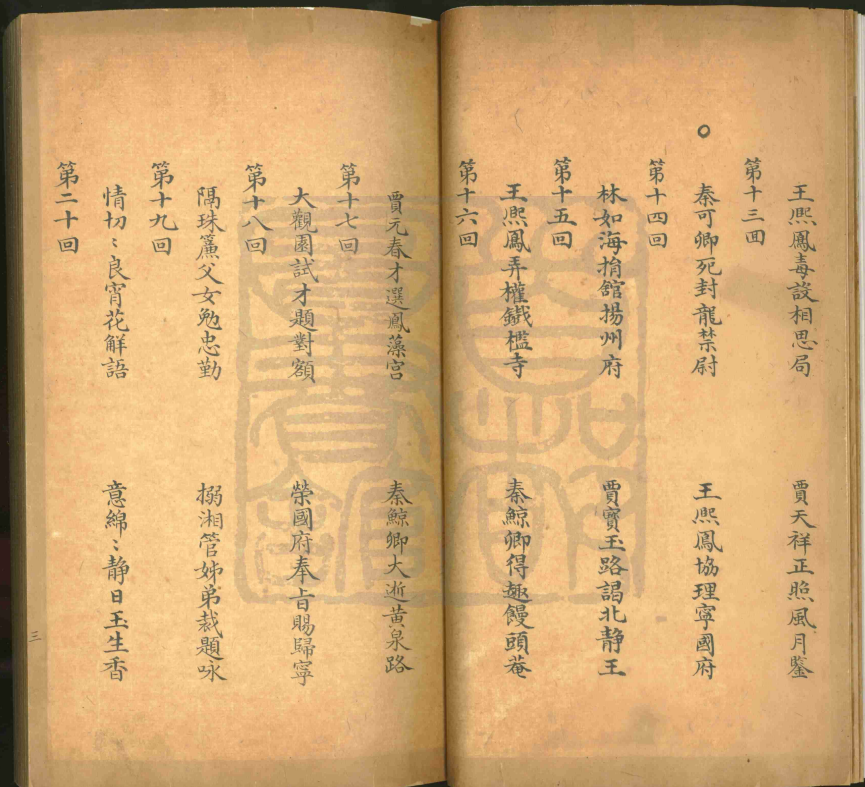 王熈鳳毒設相思局　賈天祥正照風月鑒
第十三回
秦可卿死封龍禁尉　王熈鳳協理寧國府
第十四回
林如海捐舘揚州府　賈寳玉路謁北静王
第十五回
王熈鳳弄權鐵檻寺　秦鯨卿得趣饅頭菴
第十六回
賈元春才選鳳藻宫　秦鯨卿大逝黄泉路
第十七回
大觀園試才題對額　榮國府奉旨賜歸寧
第十八回
隔珠簾父女勉忠勤　搦湘管姊弟裁題咏
第十九回
情切〻良宵花解語　意綿〻静日玉生香
第二十回
三